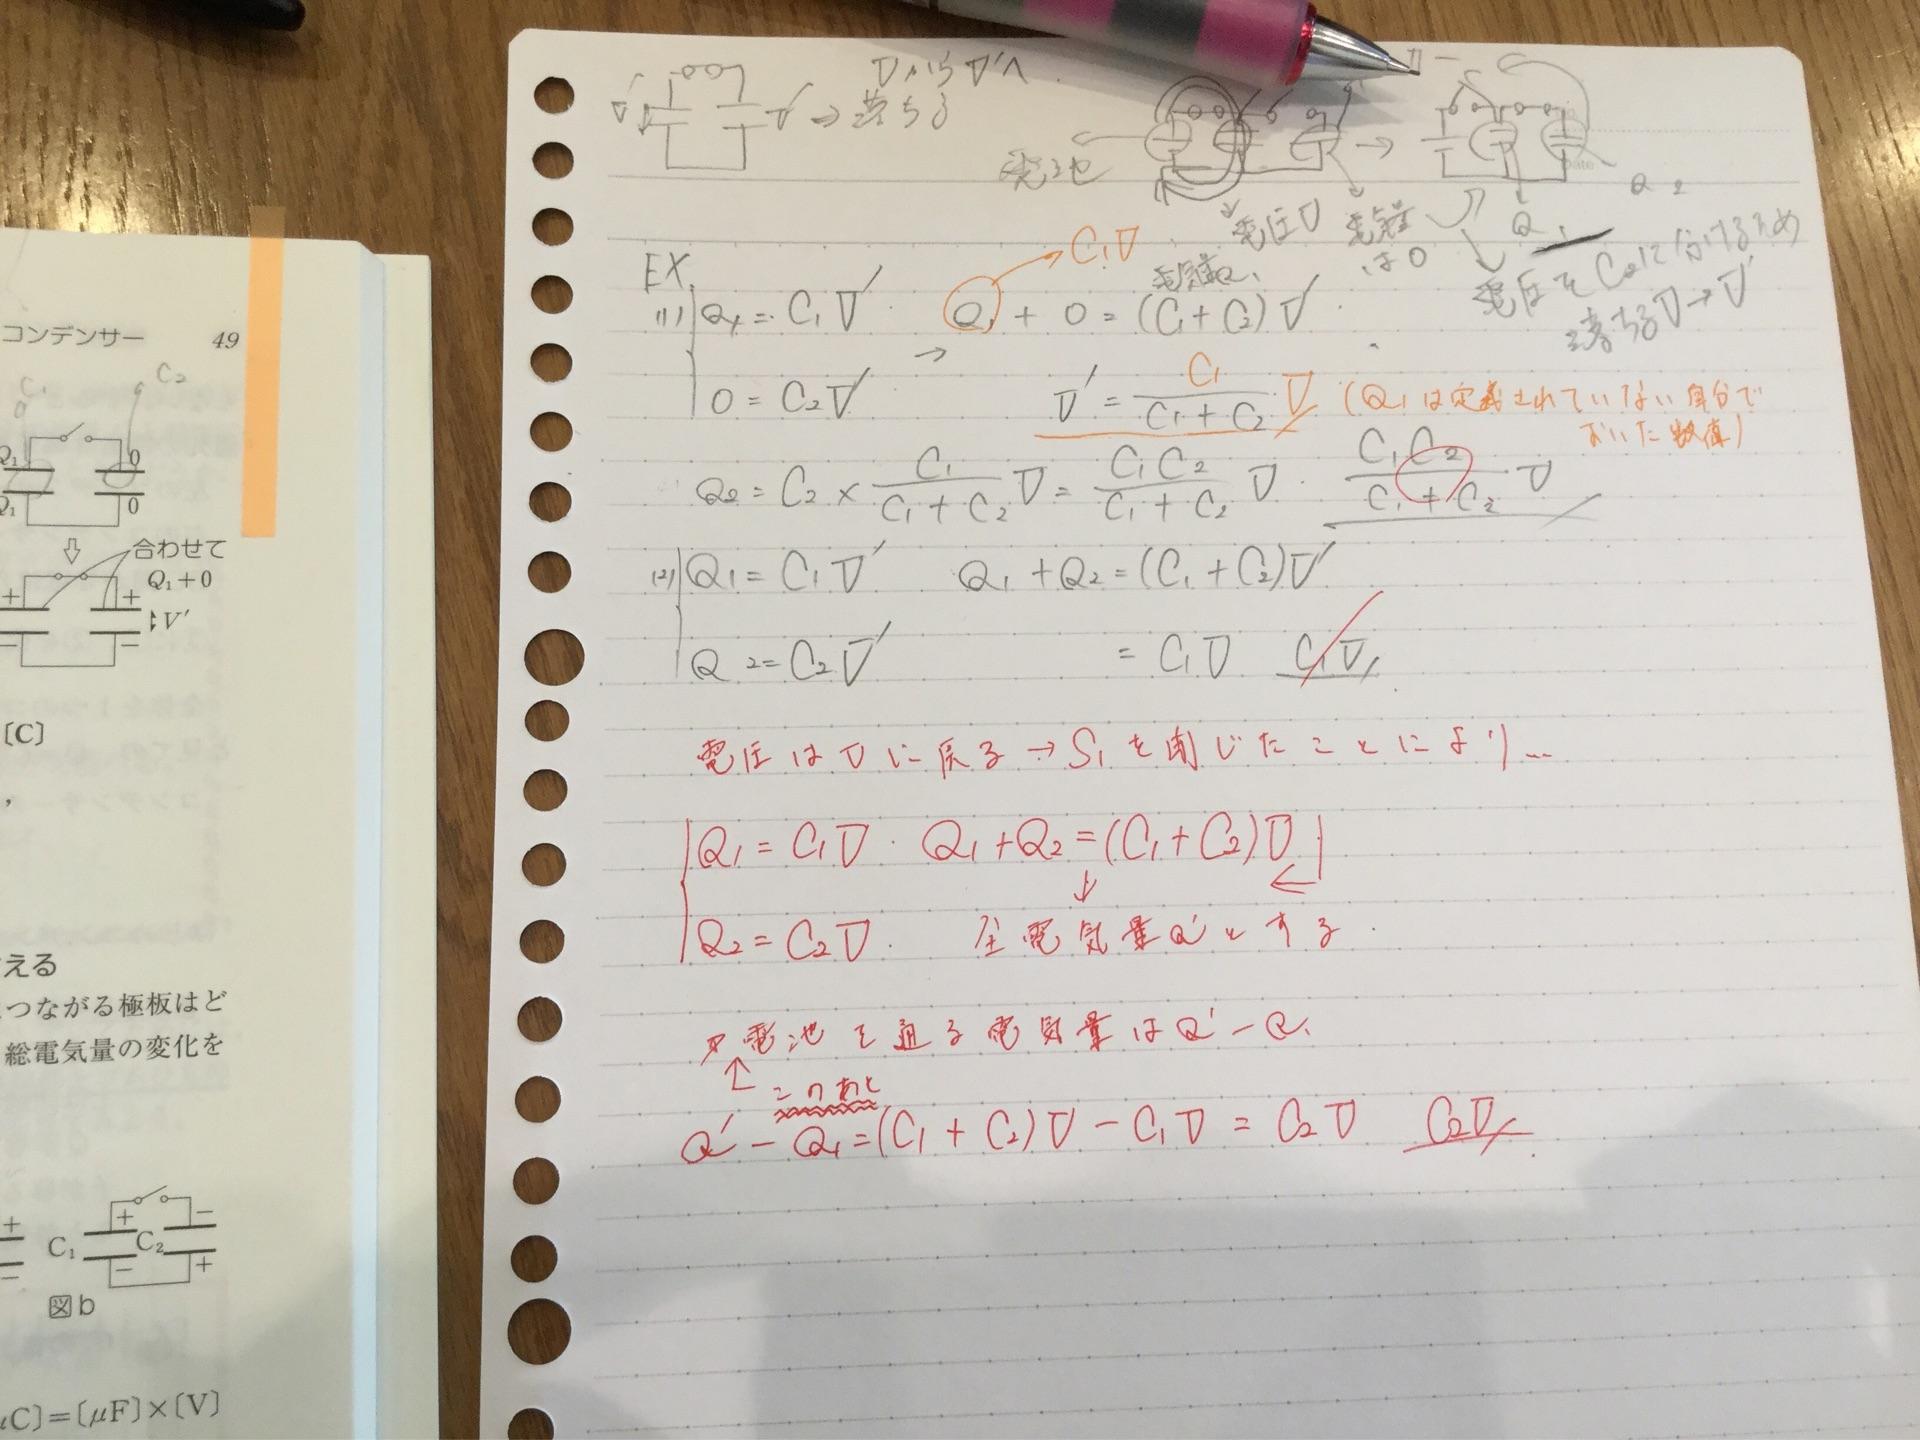 コンデンサー 49
C₁ C₂
Q₁ 0
Q₁ 0
合わせて
Q₁+0
+ +
V′
− −
[C]
える
つながる極板はど
総電気量の変化を
+ + −
C₁ C₂
− − +
図b
μC]=[μF]×[V]
V V′ ⇒ 落ちる
VからV′へ
電池
電圧V
電気量Q₁
電気量
は0
Q₁
Q₂
電圧をC₂に分けるため
落ちるV→V′
EX.
(1) Q₁ = C₁V′ → Q₁ + 0 = (C₁+C₂)V′
C₁V
0 = C₂V′ V′ = C₁/(C₁+C₂) V (Q₁は定義されていない自分で
おいた数値)
Q₂ = C₂ × C₁/(C₁+C₂) V = C₁C₂/(C₁+C₂) V . C₁C₂/(C₁+C₂) V
(2) Q₁ = C₁V′ Q₁+Q₂=(C₁+C₂)V′
Q₂=C₂V′ = C₁V C₁V
電圧はVに戻る→S₁を閉じたことにより...
Q₁ = C₁V . Q₁+Q₂=(C₁+C₂)V
↓ ←
Q₂ = C₂V . 全電気量Q′とする.
電池を通る電気量はQ′−Q₁
↑ このあと
Q′−Q₁=(C₁+C₂)V−C₁V = C₂V C₂V